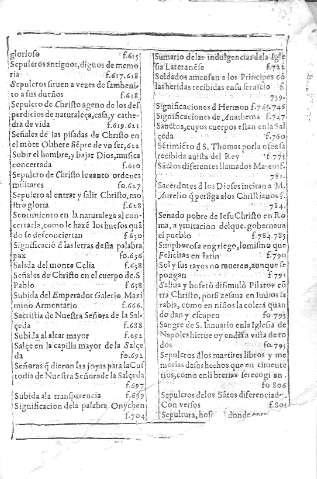 glorioso f.615
Sepulcros antiguos, dignos de memo
ria f.617.618
Sepulcros siruen a vezes de sambeni-
to a sus dueños f.618
Sepulcro de Christo ageno de los des
perdicios de naturaleza, casa, y cathe-
dra de vida f.619.621
Señales de las pisadas de Christo en
el mõte Oliuete siẽpre de ver se, 621
Subir el hombre, y bajar Dios, musica
concertada f.610
Sepulcro de Christo leuantò ordenes
militares fo.627
Sepulcro al entrar y salir Christo, mo
stro gloria f.628
Sentimiento en la naturaleza al con-
certarla, como le hazẽ los huesos quã
do se desconciertan f.630
Significaciõ d̃ las letras desta palabra
pax fo.636
Salida del monte Celia f.638
Señales de Christo en el cuerpo de S.
Pablo f.658
Subida del Emperador Galerio Maxi
mino Armentario f.666.
Sacristia de Nuestra Señora de la Sal-
çeda f.688
Subida al altar mayor f.692
Salçe en la capilla mayor de la Salçe
da fo.692
Señoras q̃ dieron las joyas para la Cus
todia de Nuestra Señora de la Salçeda
f.697
Subida a la transparencia f.699
Significacion de la palabra Onychen
f.704
Sumario de las indulgencias de la Igle
sia Lateranẽse f.722
Soldados amenstan a los Principes cõ
las heridas recibidas en su seruicio f.
739.
Significaciones d̃ Hermon f.745.746
Significaciones de Anathema f.747
Sanctos, cuyos cuerpos estan en la Sal
çeda f.760
recibida a vista del Rey f.775
Sãctos diferentes llamados Marcos f.
781.
Sacerdotes d̃ los Dioses incitan a M.
Aurelio q̃ persiga a los Christianos f.
784.
Senado pobre de Iesu Christo en Ro
ma, a ymitacion del que gouernaua
el pueblo f.784.785
Simphorosa en griego, lo mismo que
Felicitas en latin f.790
Sol y sus rayos no mueren, aunque se
pongan f.791
cabia, como en niños la colera quan
do dan y escapẽ fo 793
Sangre de S. Ianuario en la Iglesia de
Napoles hierue oy en dia a vista de to
dos fo.795
Sepulcros d̃ los martires libros y me
morias de sus hechos que en cimente
rios, como en librerias se recogian.
fo 806
Sepulcros de los Sãtos diferenciad-
Con versos f.801
Sepultura, donde